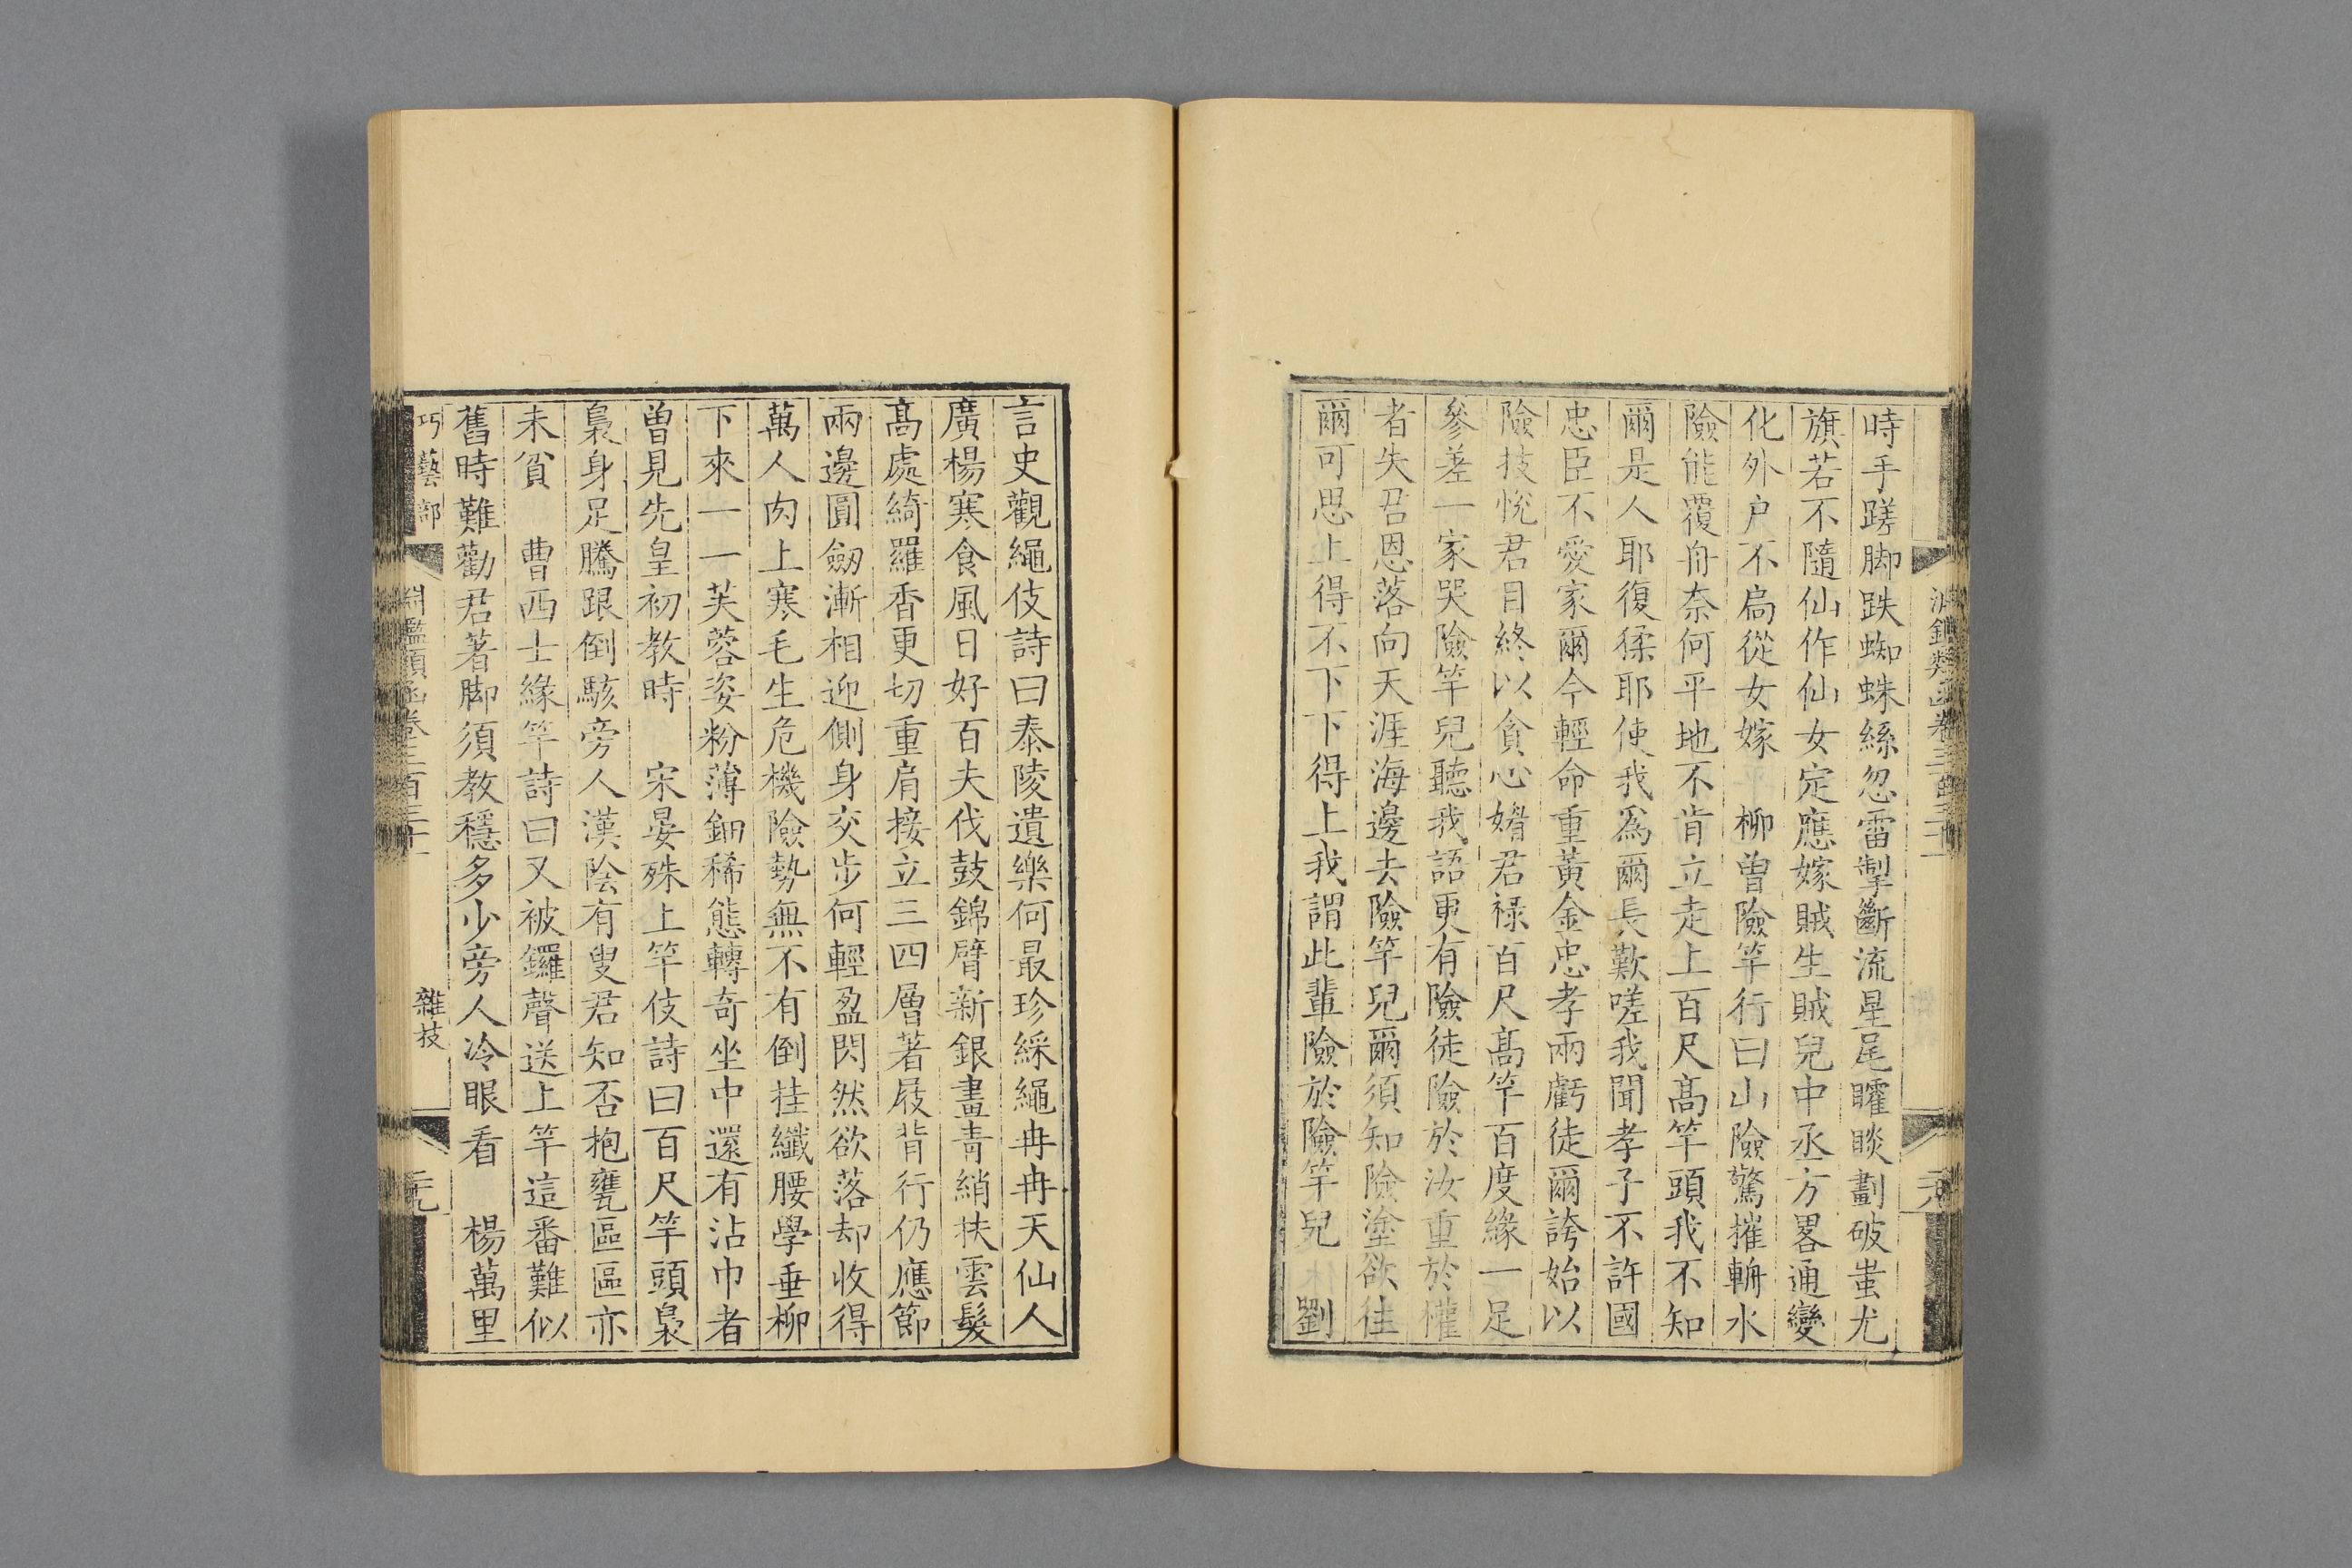 時手蹉脚跌蜘蛛絲忽雷掣斷流星尾矐睒劃破蚩尤
旗若不隨仙作仙女定應嫁賊生賊兒中丞方畧通變
化外户不扃從女嫁　柳曾險竿行曰山險驚摧輈水
險能覆舟奈何平地不肯立走上百尺髙竿頭我不知
爾是人耶復猱耶使我爲爾長歎嗟我聞孝子不許國
忠臣不愛家爾今輕命重黃金忠孝兩虧徒爾誇始以
險技恱君目終以貪心媚君祿百尺髙竿百度緣一足
參差一家哭險竿兒聽我語更有險徒險於汝重於權
者失君恩落向天涯海邊去險竿兒爾須知險塗欲往
爾可思上得不下下得上我謂此輩險於險竿兒　劉
言史觀繩伎詩曰泰陵遺樂何最珍綵繩冉冉天仙人
廣楊寒食風日好百夫伐鼓錦臂新銀畫青綃抹雲髮
髙處綺羅香更切重肩接立三四層著屐背行仍應節
兩邊圓劒漸相迎側身交步何輕盈閃然欲落却收得
萬人肉上寒毛生危機險勢無不有倒挂纖腰學垂柳
下來一一芙蓉姿粉薄鈿稀態轉奇坐中還有沾巾者
曾見先皇初教時　宋晏殊上竿伎詩曰百尺竿頭裊
裊身足騰跟倒駭旁人漢陰有叟君知否抱甕區區亦
未貧　曹西士緣竿詩曰又被鑼聲送上竿這番難似
舊時難勸君著脚須教穩多少旁人冷眼看　楊萬里
巧藝部　淵鑑類函卷三百三十一　雜技　二九